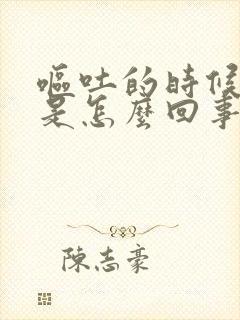 嘔吐的時候
是怎麼回事
陳志豪